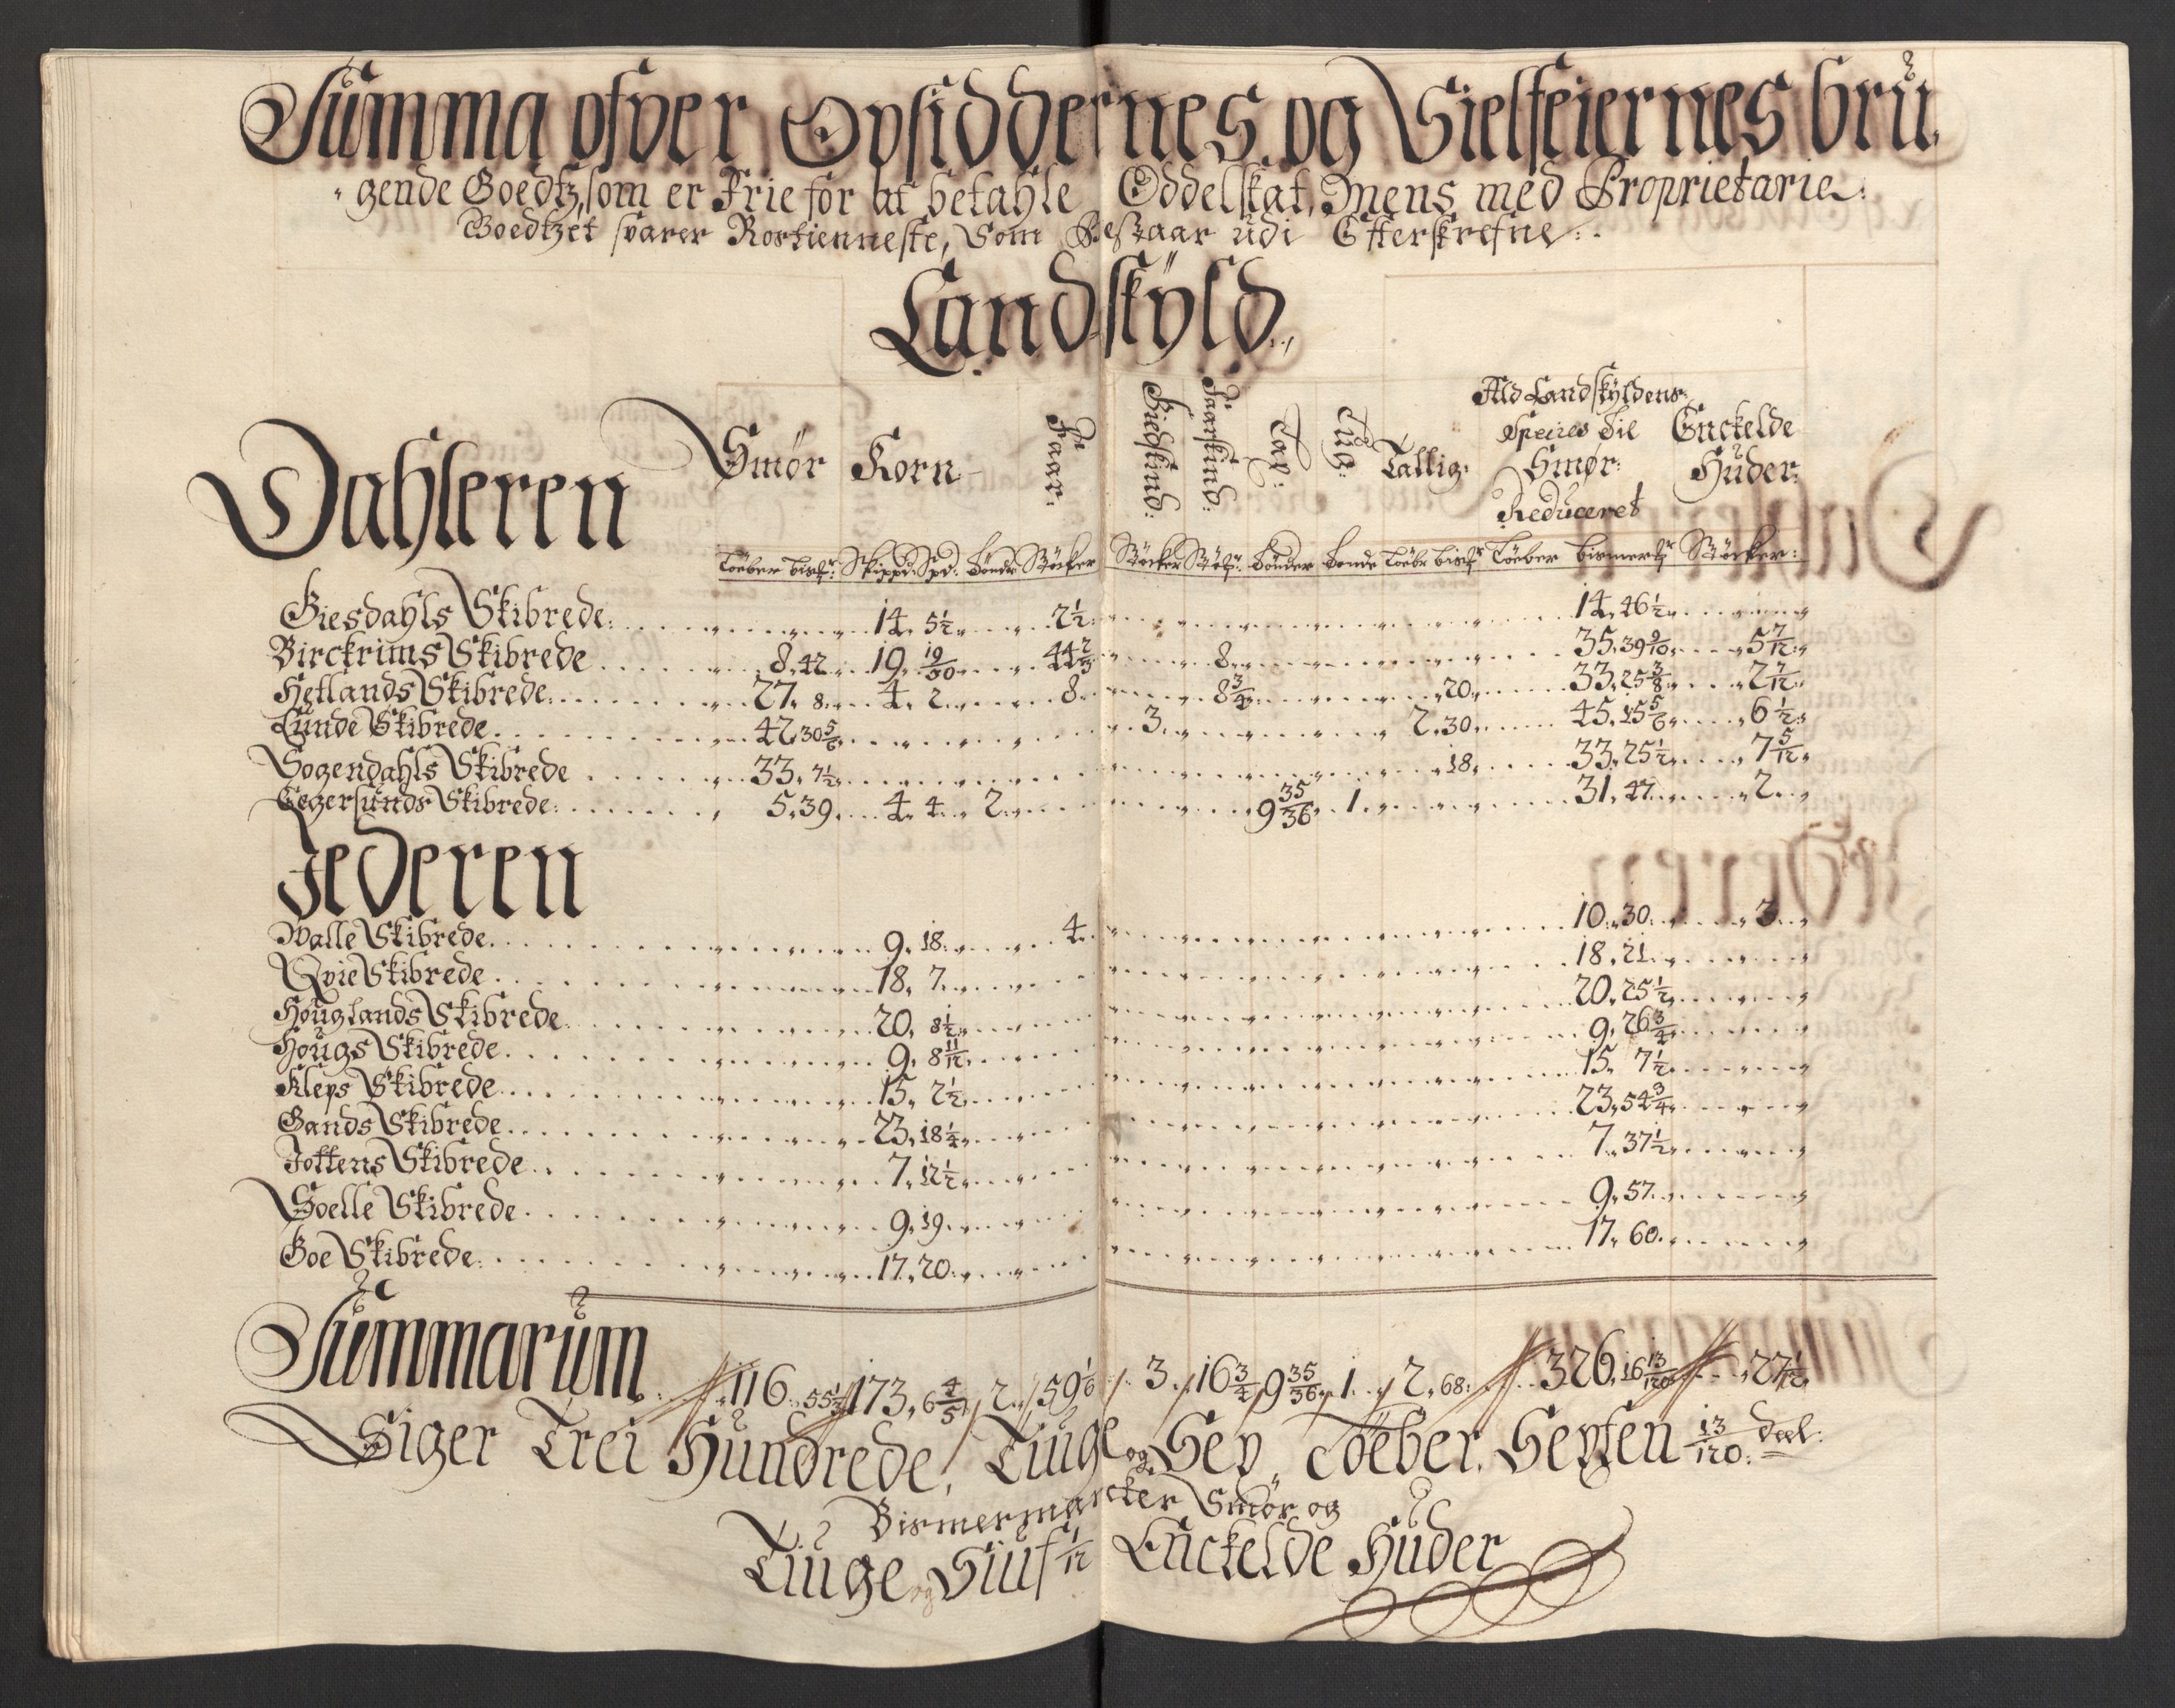 Summa ofver Opsiddernes og Sielfeiernes bru,
gende Goedtz, som er Frie for at betahle Oddelskat, Mens med Proprietarie:
Goedtzet svarer Rostienneste, Som Bestaar udi Efterskrefne:
Landskyld
Dahleren Smör Korn Faar: Giedskind: Faarskind: Tav: Tüg: Tallig: Ald Landskyldens Speiies til Smör: Reduceret Enckelde Huder:
Löeber bismr: Skippd: Spd: Bönder Stöcker Stöcker Stöckr: Bönder Bonde Löebr bismr Löeber bismermr Stöcker:
Giesdahls Skibrede: 14, 5½ 2½ 14, 46½
Birckrims Skibrede 8, 42 19, 19/30 44 2/3 8 35, 39 9/10 5 7/12
Hetlands Skibrede: 27, 8 4, 2 8 8¾ 20 33, 25 3/8 2 7/12
Lunde Skibrede 42, 30 5/6 3 2, 30 45, 15 5/6 6½
Sogendahls Skibrede 33, 7½ 18 33, 25½ 7 5/12
Eegersunds Skibrede: 5, 39 4, 4 2 9 35/36 1 31, 47 2
Jederen
Walle Skibrede 9, 18 4 10, 30 3
Qvie Skibrede 18, 7 18, 21
Houglands Skibrede 20, 8½ 20, 25½
Hougs Skibrede 9, 8 11/12 9, 26¾
Kleps Skibrede 15, 2½ 15, 7½
Gands Skibrede 23, 18¼ 23, 54¾
Jottens Skibrede 7, 12½ 7, 37½
Soelle Skibrede 9, 19 9, 57
Goe Skibrede: 17, 20 17, 60
Summarum 116, 55⅓ 173, 6 4/5 2 59 1/6 3 16¾ 9 35/36 1 2, 68 326, 16 13/120 27 1/12
Siger Trei Hundrede, Tiuge og Sex Löeber, Sexten 13/120 deel:
Bismermarcker Smör og
Tiuge og Siuf 1/12 Enckelde Huder